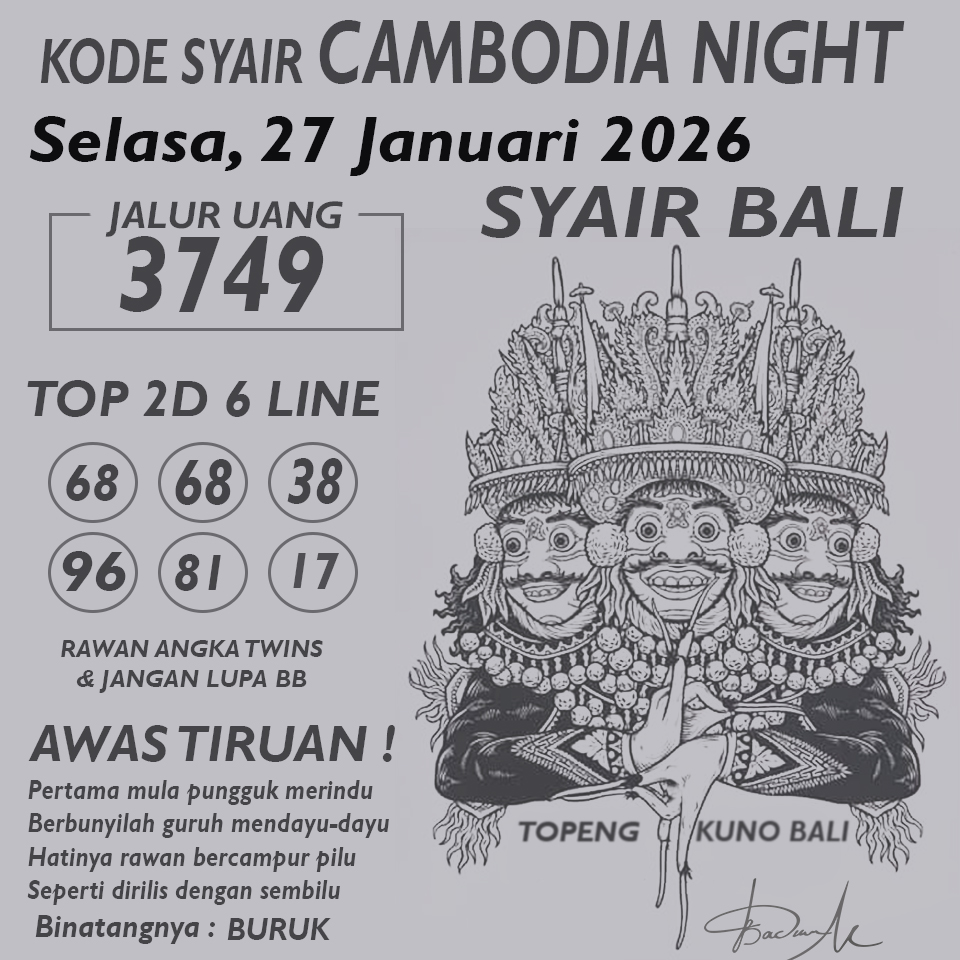 KODE SYAIR CAMBODIA NIGHT
Selasa, 27 Januari 2026
SYAIR BALI
JALUR UANG
3749
TOP 2D 6 LINE
68 68 38
96 81 17
RAWAN ANGKA TWINS
& JANGAN LUPA BB
AWAS TIRUAN !
Pertama mula pungguk merindu
Berbunyilah guruh mendayu-dayu
Hatinya rawan bercampur pilu
Seperti dirilis dengan sembilu
Binatangnya : BURUK
TOPENG KUNO BALI